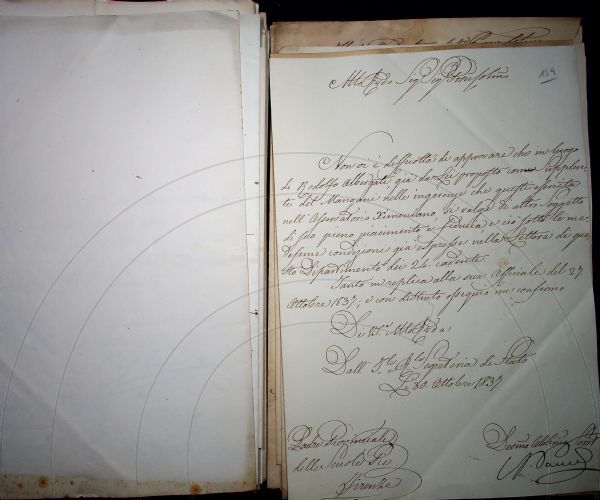 159
Molto Rdo Sigr Sigr Pron Colmo
Non vi è difficoltà di approvare che in luogo
di Rodolfo Albergati già da Lei proposto come supplen-
te del Mangani nelle ingerenze che questi esercita
nell'Osservatorio Ximeniano, si valga di altro soggetto
di suo pieno piacimento e fiducia e ciò sotto le me-
desime condizioni già espresse nella Lettera di que-
sto Dipartimento dei 24. cadente.
Tanto in replica alla sua Officiale del 27
Ottobre 1837; e con distinto ossequio mi confermo
Di V. S. Molto Rda
Dall' I. e R. Segreteria di Stato
Li 30. Ottobre 1837.
Padre Provinciale
delle Scuole Pie
Firenze